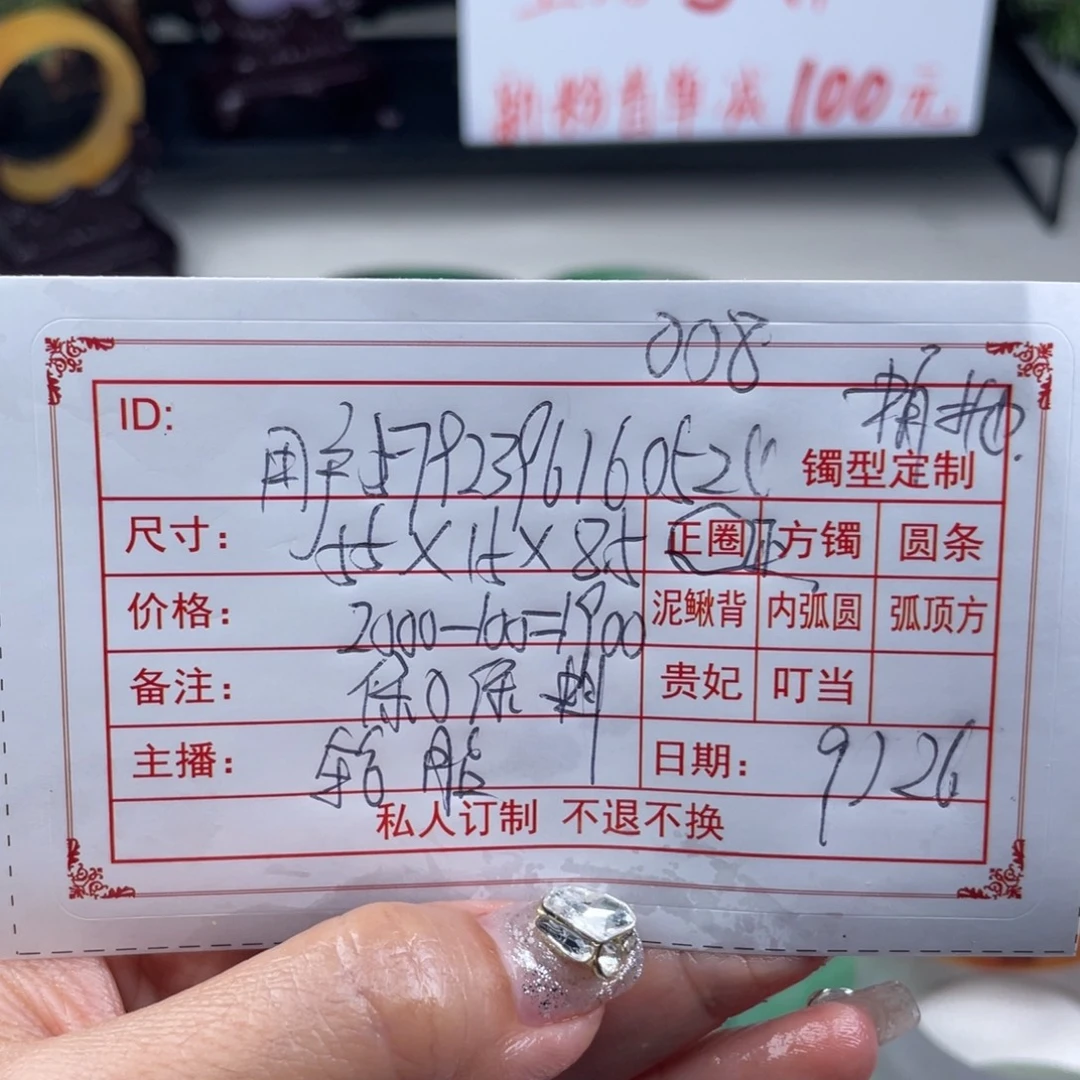 100元
008
ID: 用户5792396160520
镯型定制
尺寸: 55×15×85 正圈 正 方镯 圆条
价格: 2000-100=1900 泥鳅背 内弧圆 弧顶方
备注: 保 保 贵妃 叮当
主播: 日期: 9/26
私人订制 不退不换